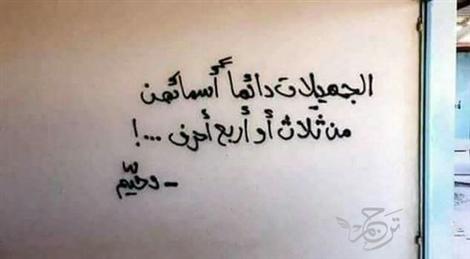 الجميلات دائماً أسمائهن
من ثلاث أو أربع أحرف ...!
- رحيّم
ترجم